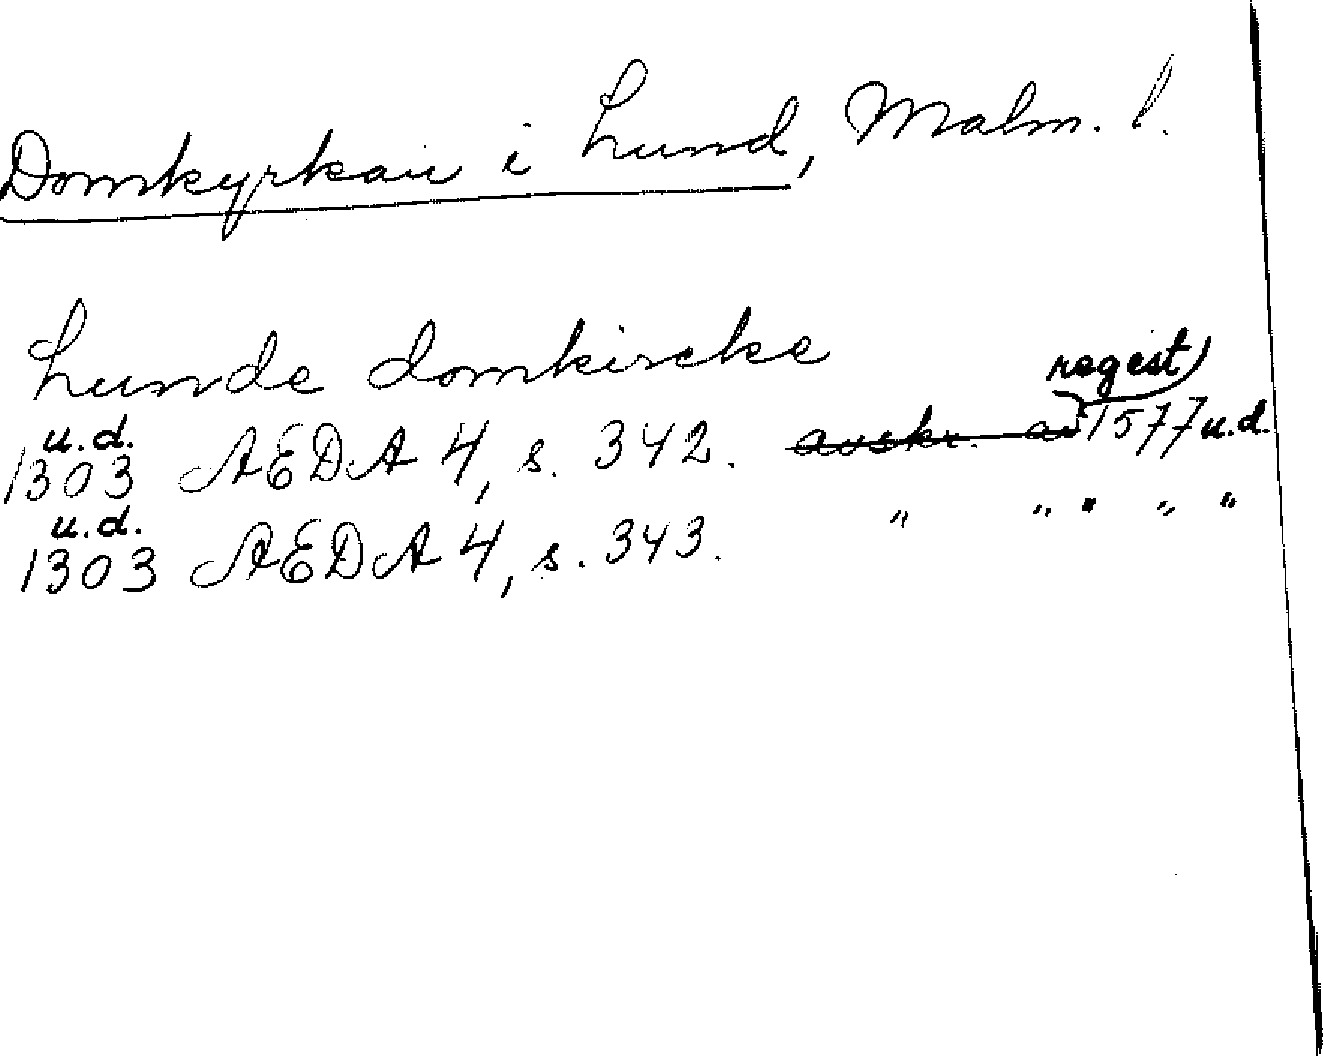 Domkyrkan i Lund, Malm. l.
Lunde domkircke
u.d.
1303 AEDA 4, s. 342. avskr. av regest 1577 u.d.
u.d.
1303 AEDA 4, s. 343. " " " " "